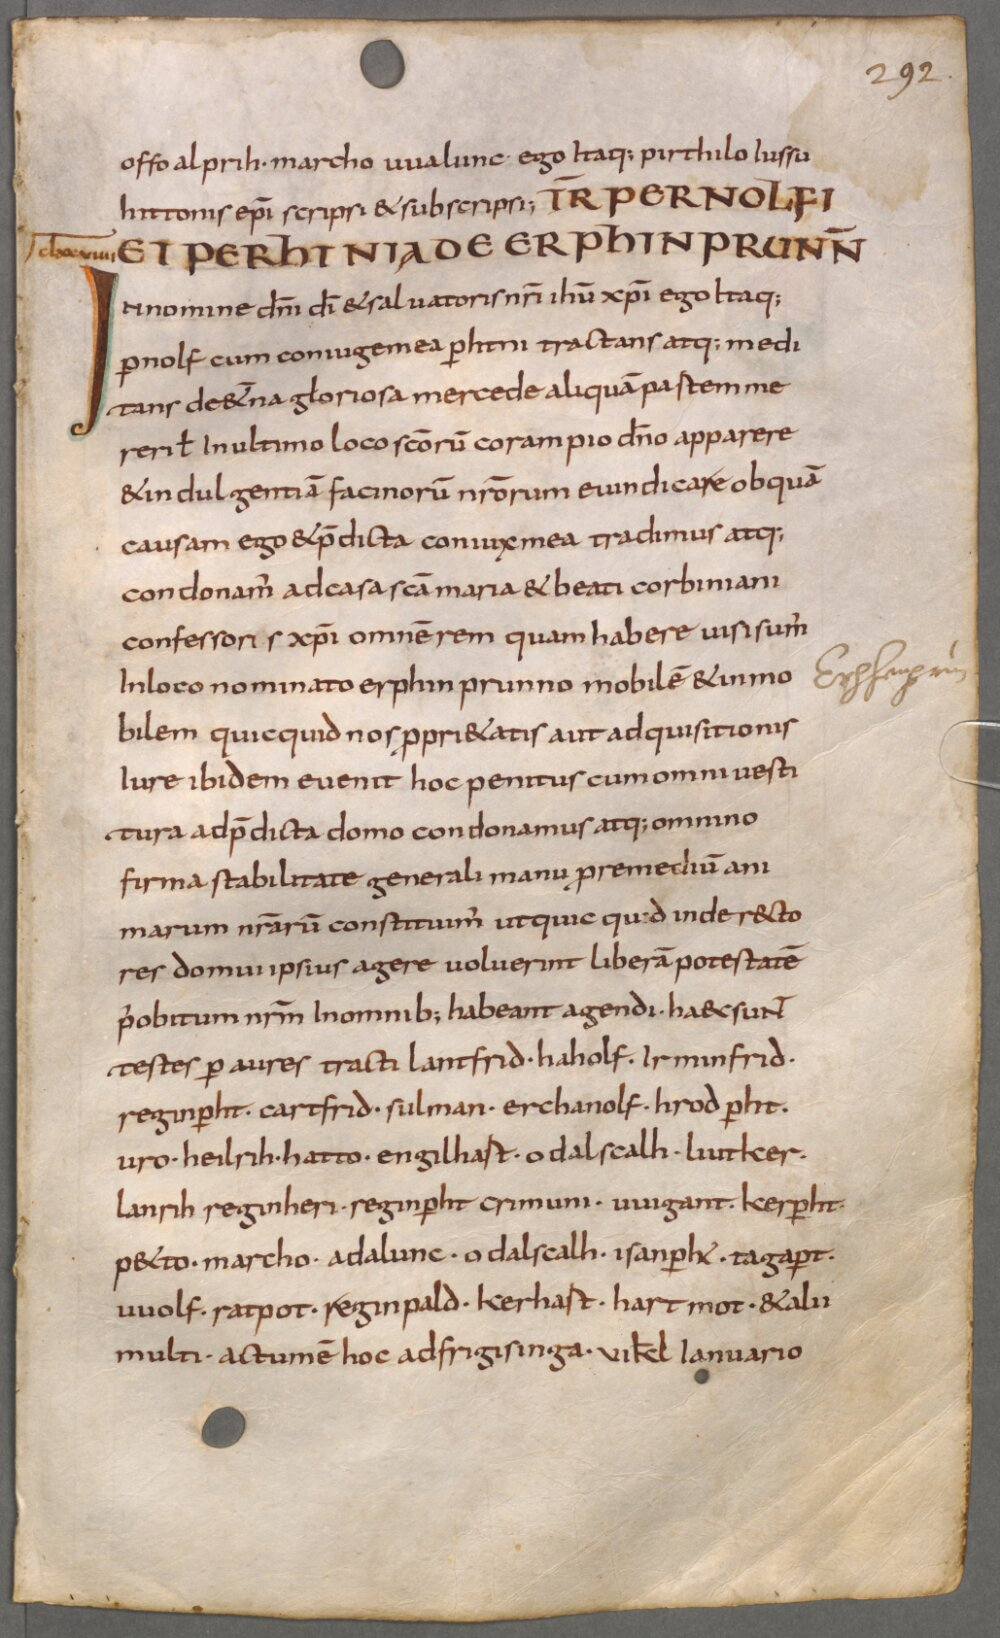 292.
offo alprih· marcho uualunc ego Itaq; pirthilo Iussu
hittonis ep̄i scripsi & subscripsi; T̄R PERNOLFI
ET PERHTNIA DE ERPHINPRUNN̄
In nomine dn̄i dī & saluatoris nr̄i ihū xp̄i ego Itaq;
p̱nolf cum coniuge mea p̱htni tractans atq; medi
tans de &̄na gloriosa mercede aliquā pastem me
reri ł In ultimo loco sc̄orū coram pio dn̄o apparere
& indulgentiā facinorū nr̄orum euindicare ob quā
causam ego & p̄dicta coniux mea tradimus atq;
condonam̄ ad casa sc̄a maria & beati corbiniani
confessoris xp̄i omnē rem quam habere uisi sum̄
In loco nominato erphinprunno mobilē & inmo
Erphenprun
bilem quicquid nos ꝓpri&atis aut adquisitionis
Iure ibidem euenit hoc penitus cum omni uesti
tura ad p̄dicta domo condonamus atq; omnino
firma stabilitate generali manu ꝓ remediū ani
marum nr̄arū constituim̄ ut quicquid inde r&cto
res domui ipsius agere uoluerint liberā potestatē
p̄ obitum nr̄m In omnib; habeant agendi· haec sun̄t
testes p̱ aures tracti lantfrid· haholf· Irminfrid·
reginp̱ht· cartfrid· sulman· erchanolf· hrodp̱ht·
uro· heilrih· hatto· engilhast· odalscalh· liutker·
lanrih reginheri· reginp̱ht crimuni· uuigant· kerp̱ht·
p&to· marcho· adalunc· odalscalh· isanp̱ht· tagap̱t·
uuolf· ratpot· reginpald· kerhast· hartmot· & alii
multi· actum ē hoc ad frigisinga· vi kł Ianuario